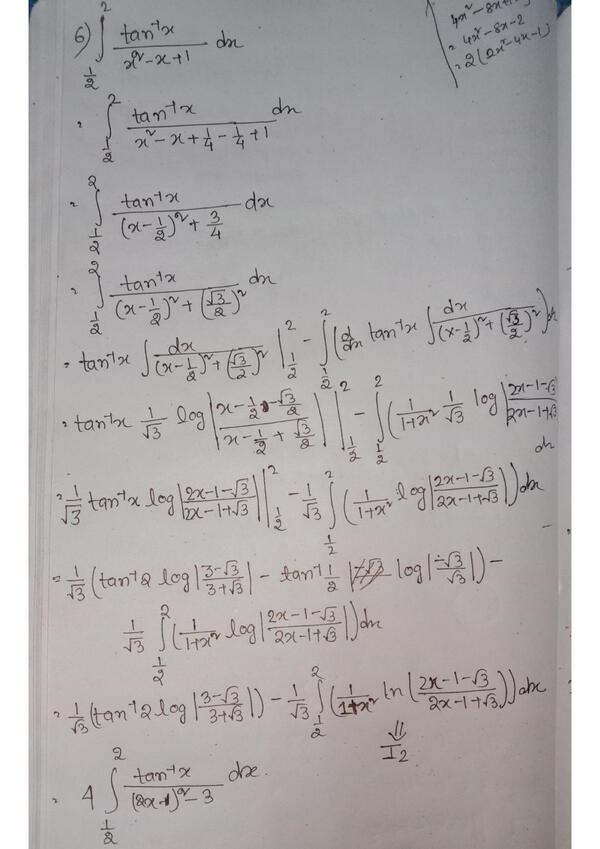 4x² - 8x
= 4x² - 8x - 2
= 2(2x² - 4x - 1)
6) ∫_{1/2}^{2} tan⁻¹x / (x² - x + 1) dx
= ∫_{1/2}^{2} tan⁻¹x / (x² - x + 1/4 - 1/4 + 1) dx
= ∫_{1/2}^{2} tan⁻¹x / ((x - 1/2)² + 3/4) dx
= ∫_{1/2}^{2} tan⁻¹x / ((x - 1/2)² + (√3/2)²) dx
= tan⁻¹x ∫ dx / ((x - 1/2)² + (√3/2)²) |_{1/2}^{2} - ∫_{1/2}^{2} (d/dx tan⁻¹x ∫ dx / ((x - 1/2)² + (√3/2)²)) dx
= tan⁻¹x 1/√3 log |(x - 1/2 - √3/2) / (x - 1/2 + √3/2)| |_{1/2}^{2} - ∫_{1/2}^{2} (1/(1+x²) 1/√3 log |(2x-1-√3) / (2x-1+√3)| dx
= 1/√3 tan⁻¹x log |(2x-1-√3) / (2x-1+√3)| |_{1/2}^{2} - 1/√3 ∫_{1/2}^{2} (1/(1+x²) log |(2x-1-√3) / (2x-1+√3)|) dx
= 1/√3 (tan⁻¹2 log |(3-√3) / (3+√3)| - tan⁻¹ 1/2 log |-√3 / √3|) -
1/√3 ∫_{1/2}^{2} (1/(1+x²) log |(2x-1-√3) / (2x-1+√3)|) dx
= 1/√3 (tan⁻¹2 log |(3-√3) / (3+√3)|) - 1/√3 ∫_{1/2}^{2} (1/(1+x²) ln (|(2x-1-√3) / (2x-1+√3)|)) dx
⇓
I₂
= 4 ∫_{1/2}^{2} tan⁻¹x / ((2x-1)² - 3) dx.